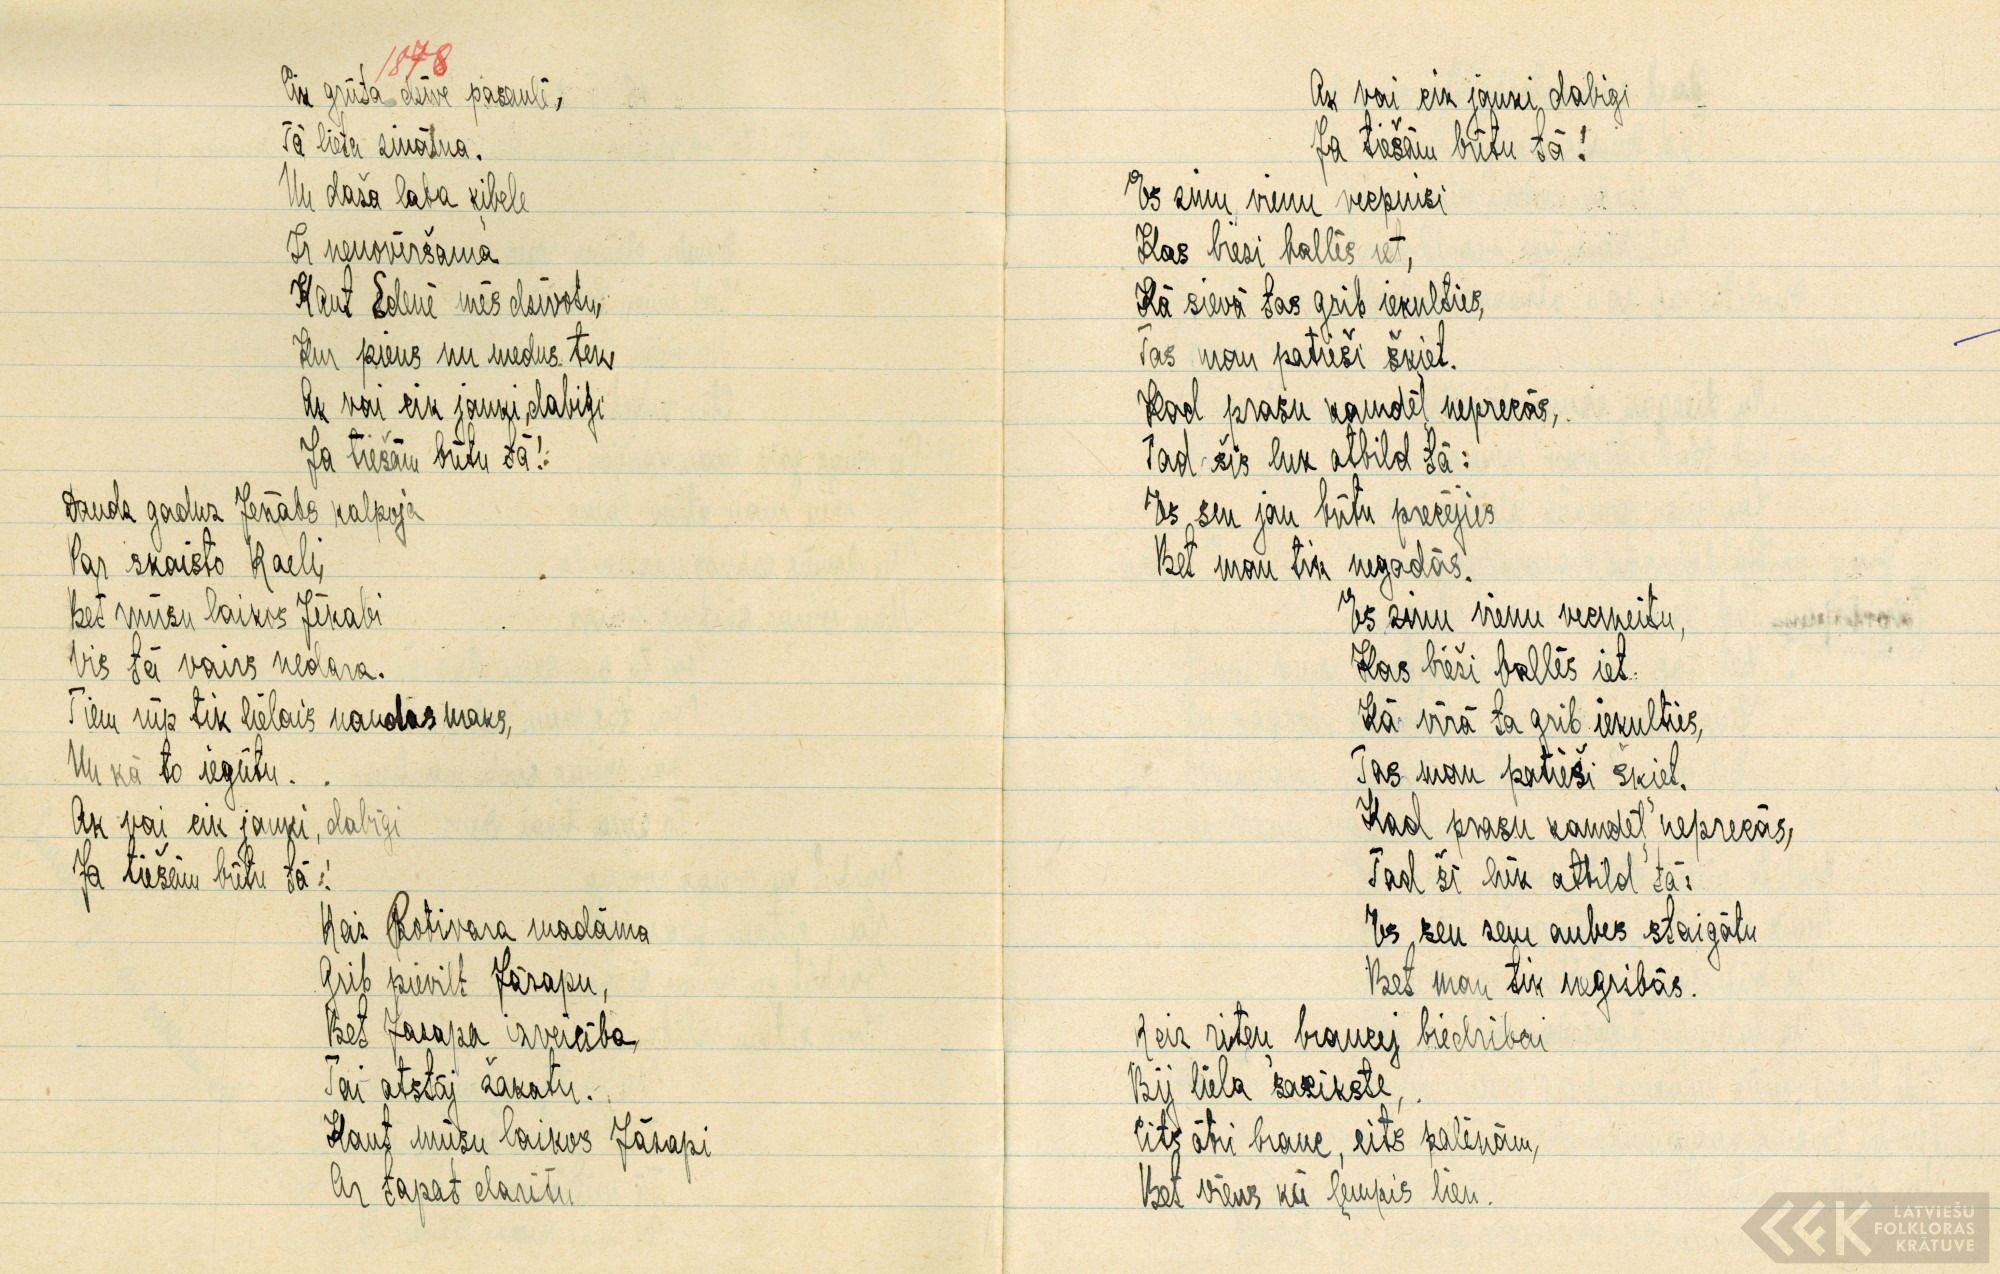 1878
Cik grūta dzīve pasaulē,
Tā lieta zināma.
Un daša laba ķibele
Ir nenovēršama
Kaut Edenē mēs dzīvotu,
Kur piens un medus tek,
Ak vai cik jauki, dabigi
Ja tiešām būtu tā!
Daudz gadus Jēkabs kalpoja
Par skaisto Raeli,
Bet mūsu laikos Jēkabi
Vis tā vairs nedara.
Tiem rūp tik lielais naudas maks,
Un kā to iegūtu.
Ak vai cik jauki, dabīgi
Ja tiešām būtu tā!
Reiz Potivara madāma
Grib pievilt Jāzapu,
Bet Jazapa izveicība,
Tai atstāj žaketu.
Kaut mūsu laikos Jāzapi
Ar tapat darītu
Ak vai cik jauki, dabigi
Ja tiešām būtu tā!
Es zinu vienu vecpuisi
Kas bieži ballēs iet,
Kā sievā tas grib iekulties,
Tas man patieši šķiet.
Kad prasu kamdēļ neprecās,
Tad šis luk atbild tā:
Es sen jau būtu precējies
Bet man tik negadās.
Es zinu vienu vecmeitu,
Kas bieži ballēs iet.
Kā vīrā ta grib iekulties,
Tas man patieši šķiet.
Kad prasu kamdēļ neprecās,
Tad šī lūk atbild tā:
Es sen zem aubes staigātu
Bet man tik negribās.
Reiz riteņ braucej biedribai
Bij liela sacikste,
Cits ātri brauc, cits palēnām,
Bet viens kā ļempis lien.
LATVIEŠU
FOLKLORAS
KRĀTUVE